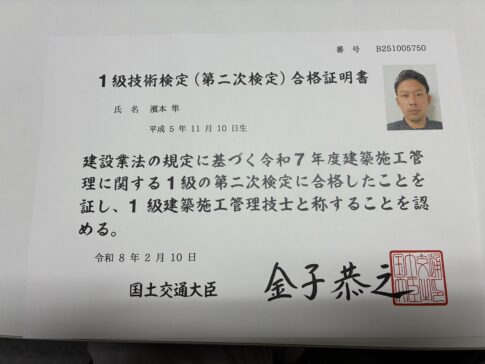 番 号 B251005750
1級技術検定(第二次検定)合格証明書
氏 名 濵本 隼
平成 5年 11月 10日生
建設業法の規定に基づく令和7年度建築施工管
理に関する1級の第二次検定に合格したことを
証し、1級建築施工管理技士と称することを認
める。
令和 8年 2月 10日
国土交通大臣 金子恭之